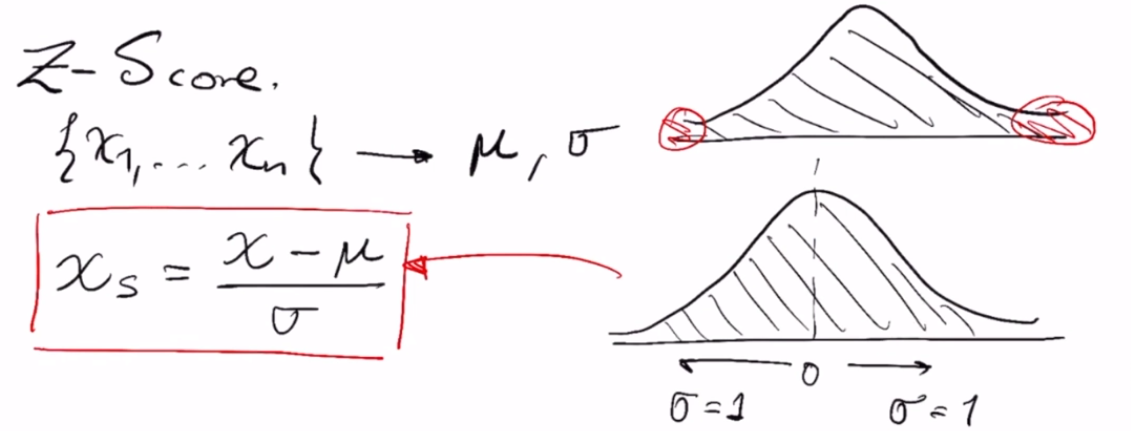 Z-Score.
{x₁,... xₙ} → μ, σ
xₛ = (x - μ) / σ
0
σ=1 σ=1